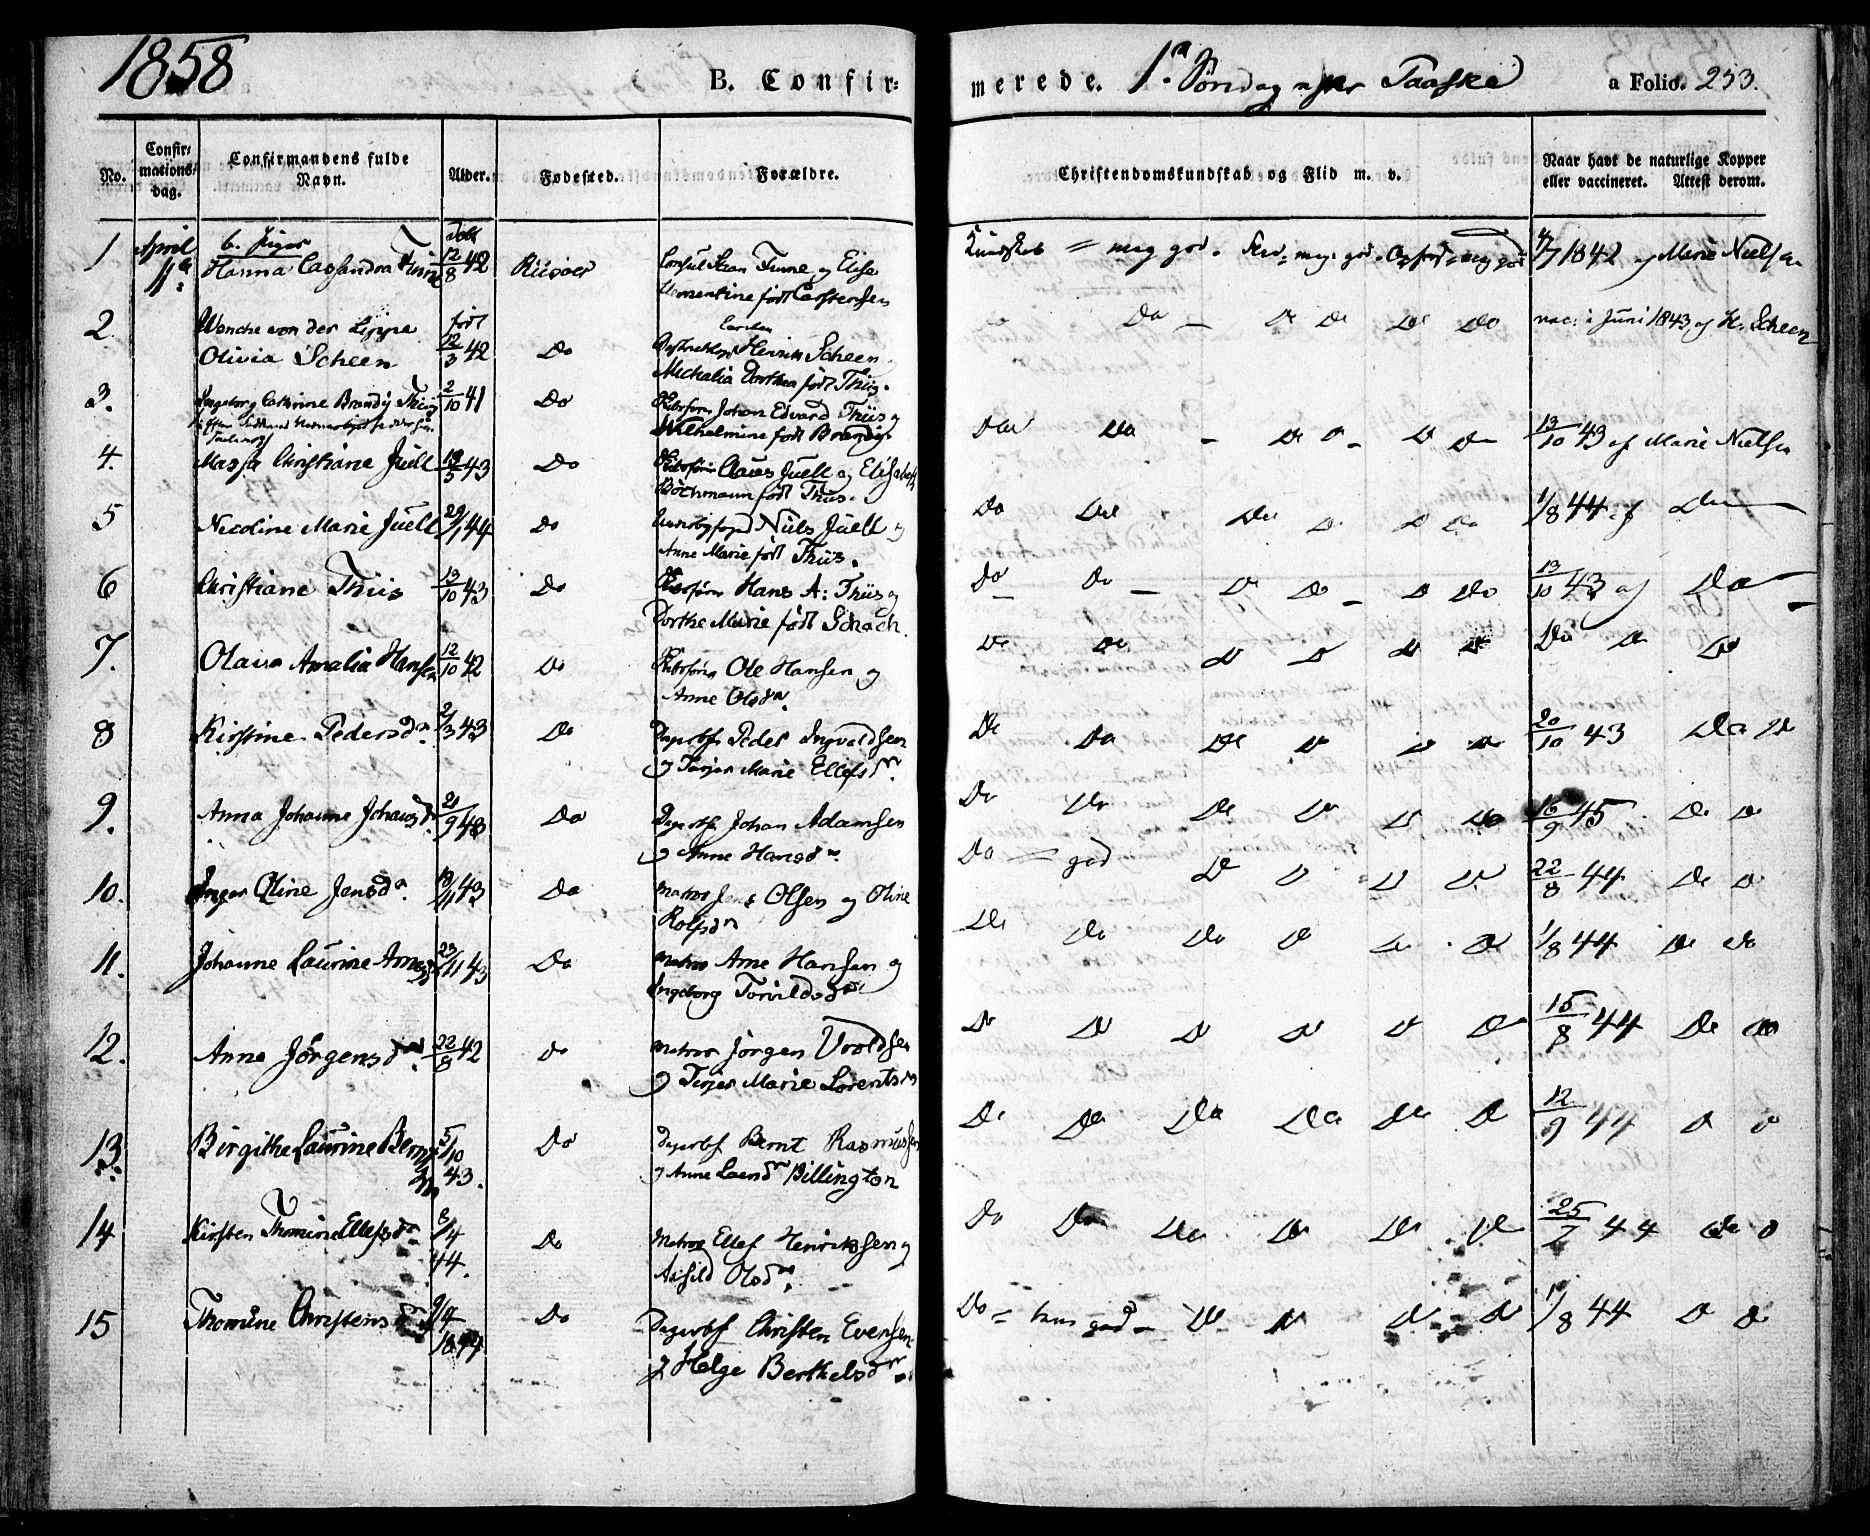 1858
B. Confir=
merede. 1ste Söndag efter Paaske
a Folio. 253.
No.
Confir=
mations=
dag.
Confirmandens fulde
Navn.
Alder.
Fodested.
Forældre.
Christendomskundskab og Flid m. v.
Naar havt de naturlige Kopper
eller vaccineret. Attest derom.
b. Piger
1 April 11te Hanna Cassandra Finne født 12/8 42 Riisöer Consul Finne og Elise
Clementine født Carstensen
Kundskab = meg god. Flid = meg. god. Opførs = meg god 4/7 1842 af Marie Nielsen
2. Wenche von der Lippe
Olivia Scheen født 12/3 42 Do Henrik Scheen
Michalia Dorthea født Thiis.
Do Do Do Do Do vac: i Juni 1843 af H. Scheen
3. Ingeborg Cathrine Brandy Thiis 2/10 41 Do Skibsfører Johan Edvard Thiis og
Wilhelmine født Brandy.
Do Do Do Do 13/10 43 af Marie Nielsen
4. Massa Christiane Juell 19/5 43 Do Skibsfører Claus Juell og Elisabeth
født Thiis.
Do Do Do Do 1/8 44 af Do
5 Nicoline Marie Juell 29/1 44 Do Niels Juell og
Anne Marie født Thiis.
6 Christiane Thiis 13/10 43 Do Skibsfører Hans A: Thiis og
Dorthe Marie født Schach.
Do Do Do Do Do Do 13/10 43 af Do
7. Olava Amalia Hansen 12/10 42 Do Skibsfører Ole Hansen og
Anne Olsdr.
Do Do Do Do Do Do Do Do Do
8 Kirstine Pedersdr. 2/3 43 Do Dagarbf Peder Ingvaldsen
og Tarjer Marie Ellefsdr.
Do Do Do Do Do Do 20/10 43 Do Do
9. Anna Johanne Johansdr. 21/9 43 Do Dagarbf Johan Adamsen
og Anne Hansdr.
Do Do Do Do Do Do 16/9 45 Do Do
10. Inger Oline Jensdr. 18/11 43 Do Matros Jens Olsen og Oline
Rolfsdr
Do = god Do Do Do Do 22/8 44 Do Do
11. Johanne Laurine Arnesdr 23/11 43 Do Matros Arne Hansen og
Ingeborg Torvildsdr
Do Do Do Do Do Do 1/8 44 Do Do
12. Anne Jörgensdr. 22/8 42 Do Matros Jörgen Uvoldsen
og Terjer Marie Lorentsdr
Do Do Do Do Do Do 15/8 44 Do Do
13. Birgithe Laurine Berntsdr 5/10 43. Do Dagarbf Bernt Rasmussen
og Anne Larsdr Billington
Do Do Do Do Do Do 12/9 44 Do Do
14 Kirsten Thomine Ellefsdr 8/4 44. Do Matros Ellef Henriksen og
Aasild Olsdr.
Do Do Do Do Do Do 25/7 44 Do Do
15 Thomine Christensdr 9/9 1844 Do Dagarbf Christen Evensen
og Helge Berthelsdr.
Do = temm god Do Do Do Do 1/8 44 Do Do